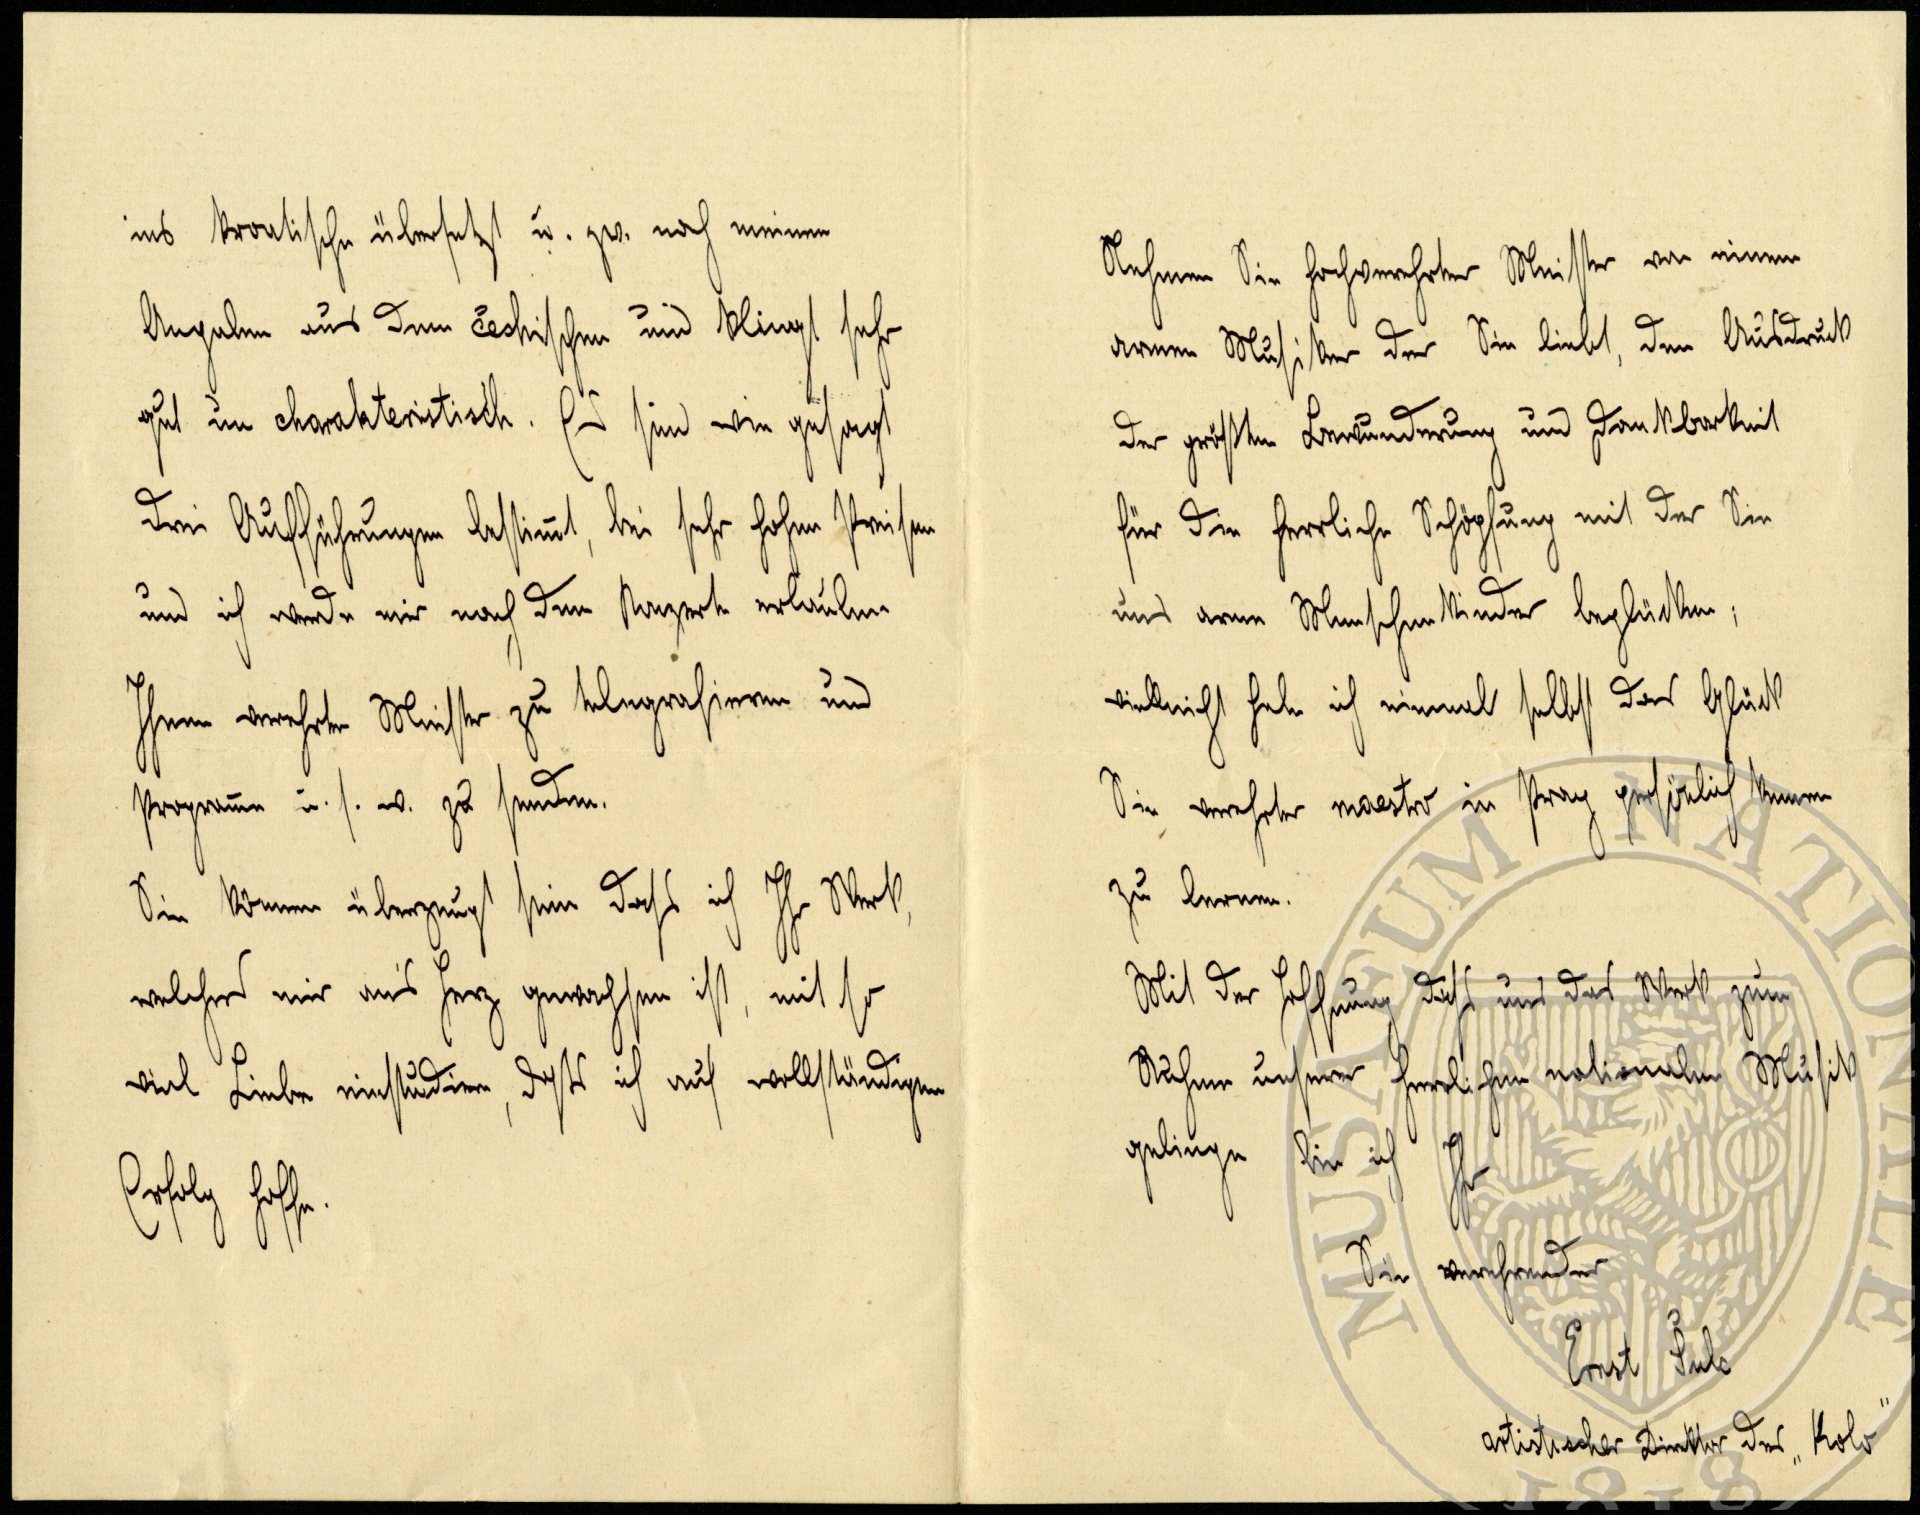 ins kroatische übersetzt u. zw. nach meinen
Angaben aus dem česhischen und klingt sehr
gut un charakteristisch. Es sind wie gesagt
drei Aufführungen bestim̅t, bei sehr hohen Preisen
und ich werde mir nach dem Konzerte erlauben
Ihnen verehrter Meister zu telegrafieren und
Program̅e u. s. w. zu senden.
Sie können überzeugt sein dass ich Ihr Werk,
welches mir ans Herz gewachsen ist, mit so
viel Liebe einstudiere, dass ich auf vollständigen
Erfolg hoffe.
Nehmen Sie hochverehrter Meister von einem
armen Musiker der Sie liebt, den Ausdruck
der größten Bewunderung und Dankbarkeit
für die herrliche Schöpfung mit der Sie
uns arme Menschenkinder beglücken;
vielleicht habe ich einmal selbst das Glück
Sie verehrter maestro in Prag persönlich kennen
zu lernen.
Mit der Hoffnung dass uns das Werk zum
Ruhme unserer herrlichen nationalen Musik
gelinge bin ich Ihr
Sie verehrender
Ernst Šulc
artistischer Direktor des „Kolo"
MUSAEUM NATIONALE
1818